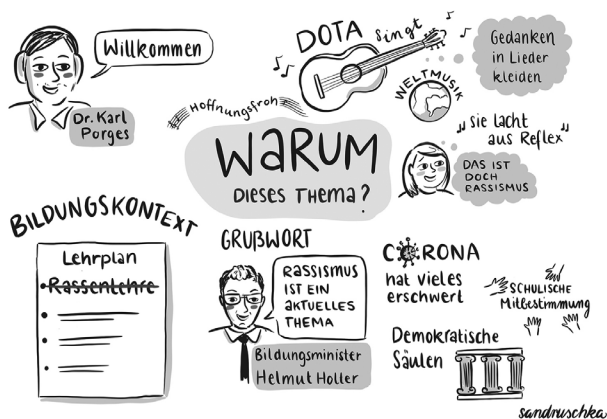 Willkommen
Dr. Karl
Porges
DOTA singt
Gedanken
in Lieder
kleiden
WELTMUSIK
Hoffnungsfroh
WARUM
DIESES THEMA?
„Sie lacht
aus Reflex”
DAS IST
DOCH
RASSISMUS
BILDUNGSKONTEXT
Lehrplan
Rassenlehre
GRUẞWORT
RASSISMUS
IST EIN
AKTUELLES
THEMA
Bildungsminister
Helmut Holler
CORONA
hat vieles
erschwert
SCHULISCHE
Mitbestimmung
Demokratische
Säulen
sandruschka